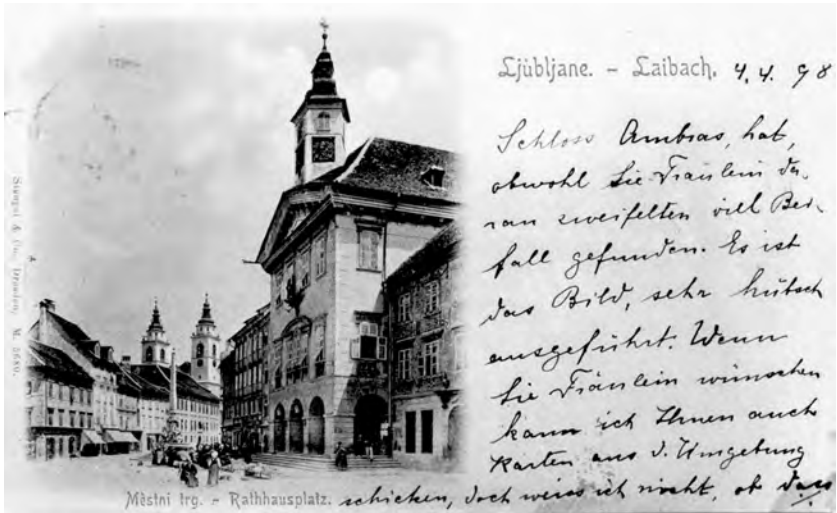 Ljübljane. – Laibach. 4.4.98
Schloss Ambras, hat,
obwohl Sie Fräulein da-
ran zweifelten viell Bei-
fall gefunden. Es ist
das Bild, sehr hübsch
ausgeführt. Wenn
Sie Fräulein wünschen
kann ich Ihnen auch
Karten aus d. Umgebung
schicken, doch weiss ich nicht, ob dass
Městni trg. – Rathhausplatz.
Stengel & Co., Dresden, M.